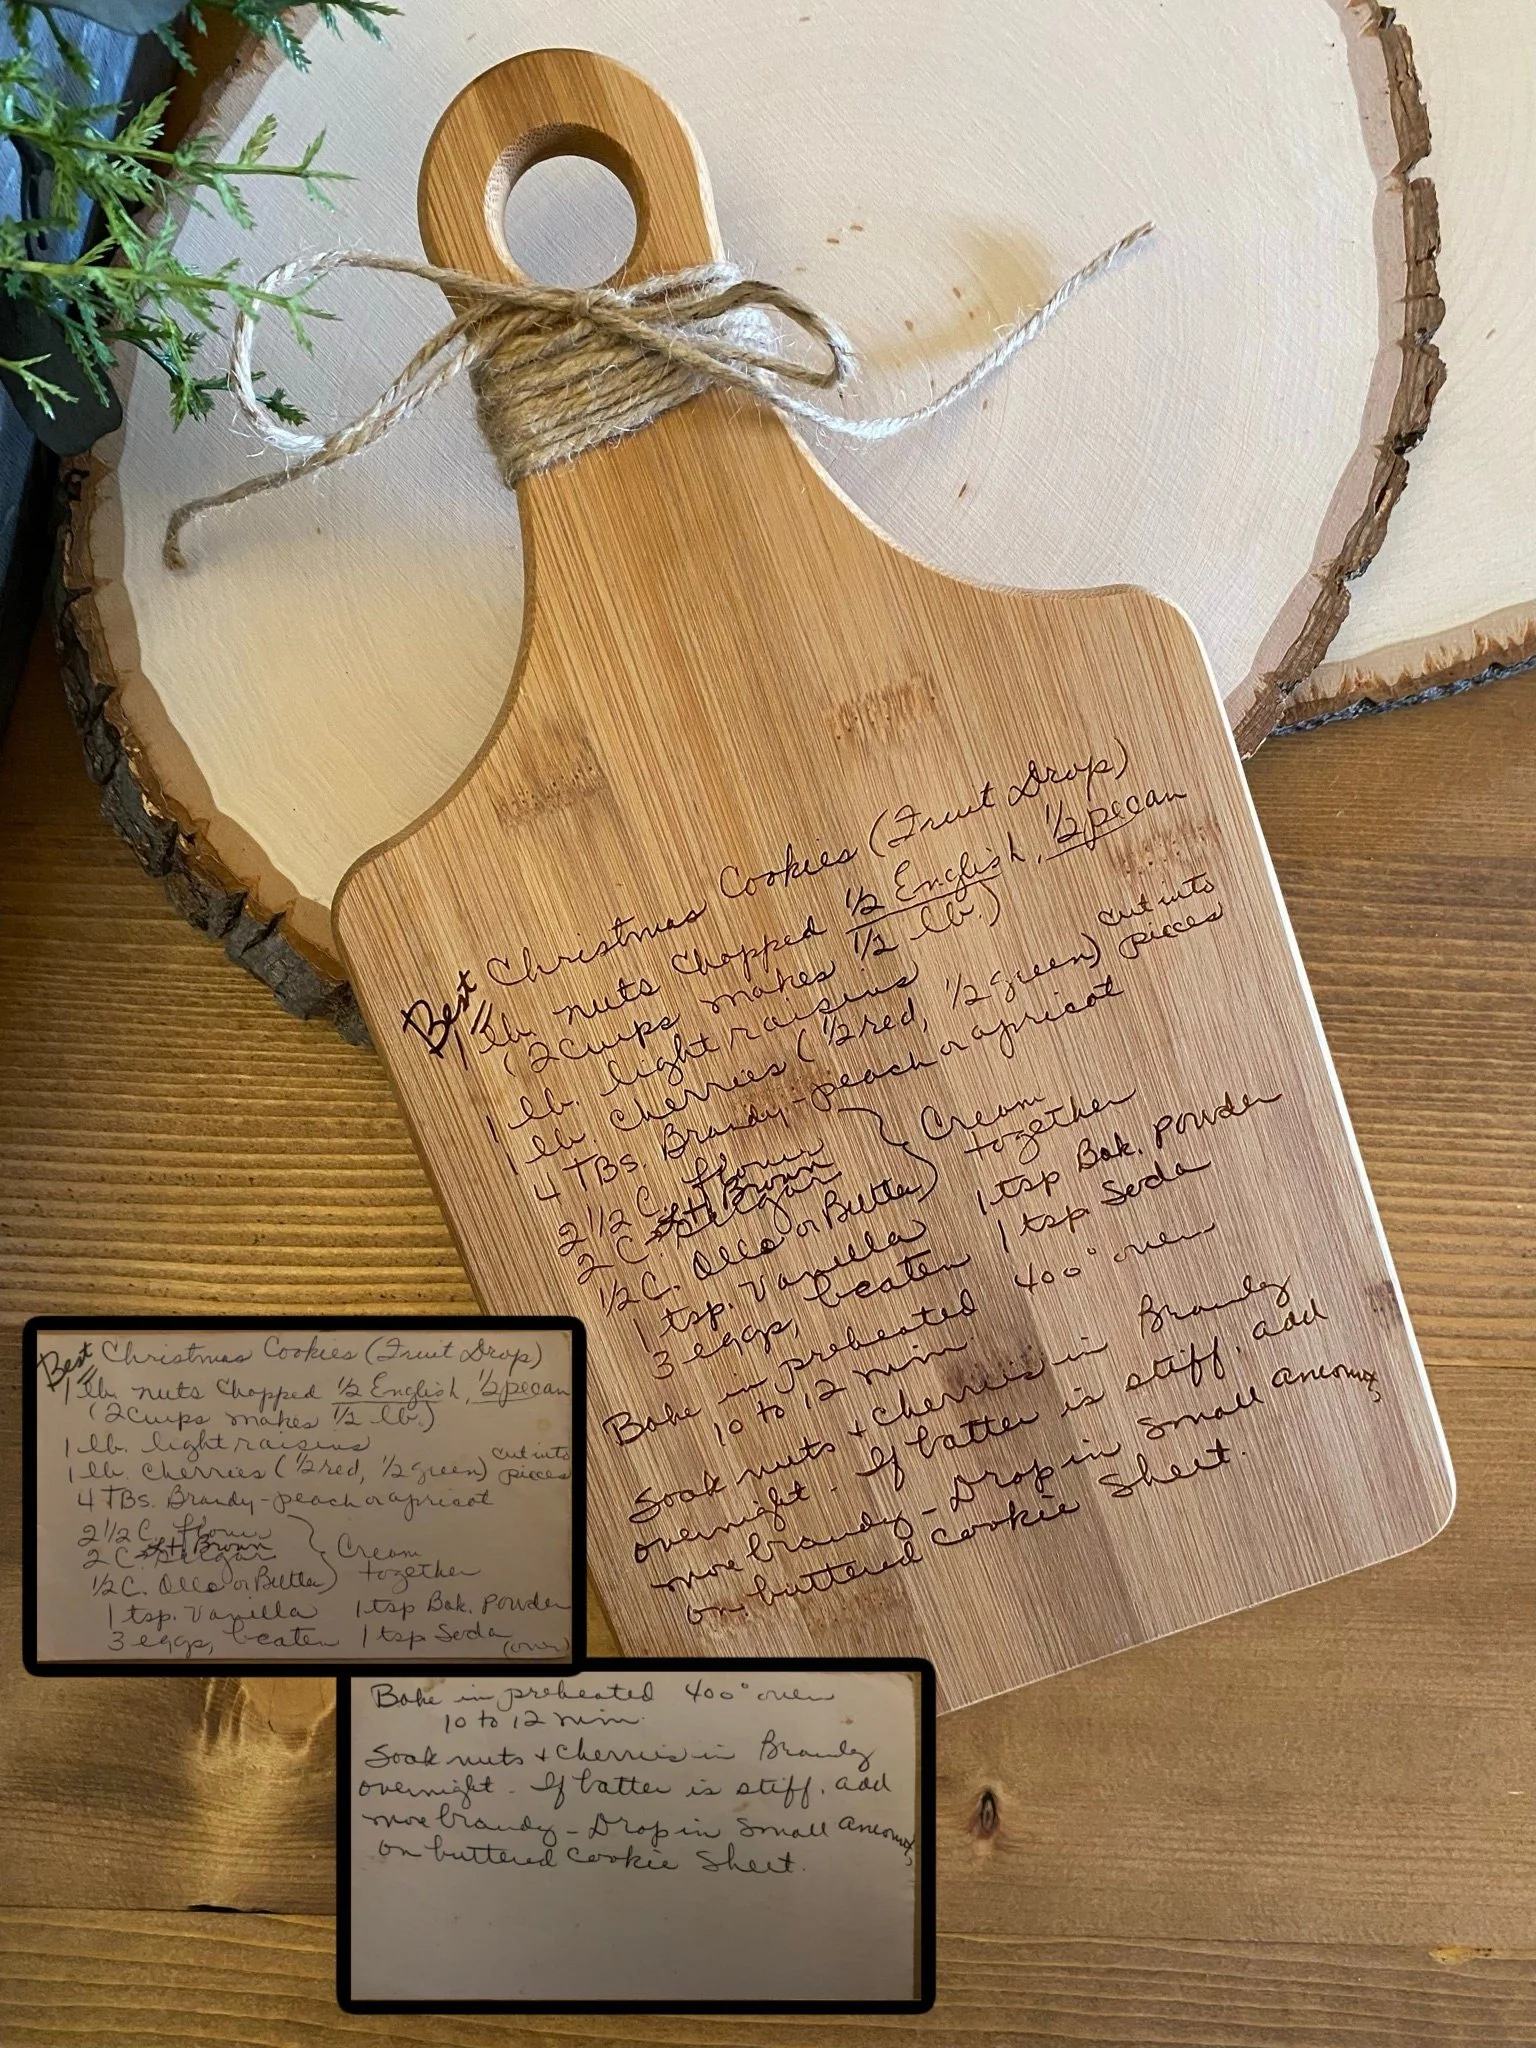 Best Christmas Cookies (Fruit Drop)
1 lb. nuts chopped 1/2 English, 1/2 pecan
(2 cups makes 1/2 lb.)
1 lb. light raisins
1 lb. cherries (1/2 red, 1/2 green) cut into pieces
4 TBs. Brandy - peach or apricot
2 1/2 C. flour
2 C. Lt Brown sugar
1/2 C. Oleo or Butter } Cream together
1 tsp. Vanilla 1 tsp Bak. Powder
3 eggs, beaten 1 tsp Soda
Bake in preheated 400° oven
10 to 12 min.
Soak nuts + cherries in Brandy
overnight - If batter is stiff, add
more brandy - Drop in small amounts
on buttered cookie sheet.
Best Christmas Cookies (Fruit Drop)
1 lb. nuts chopped 1/2 English, 1/2 pecan
(2 cups makes 1/2 lb.)
1 lb. light raisins
1 lb. cherries (1/2 red, 1/2 green) cut into pieces
4 TBs. Brandy - peach or apricot
2 1/2 C. flour
2 C. Lt Brown sugar
1/2 C. Oleo or Butter } Cream together
1 tsp. Vanilla 1 tsp Bak. Powder
3 eggs, beaten 1 tsp Soda (over)
Bake in preheated 400° oven
10 to 12 min.
Soak nuts + cherries in Brandy
overnight - If batter is stiff, add
more brandy - Drop in small amounts
on buttered cookie sheet.